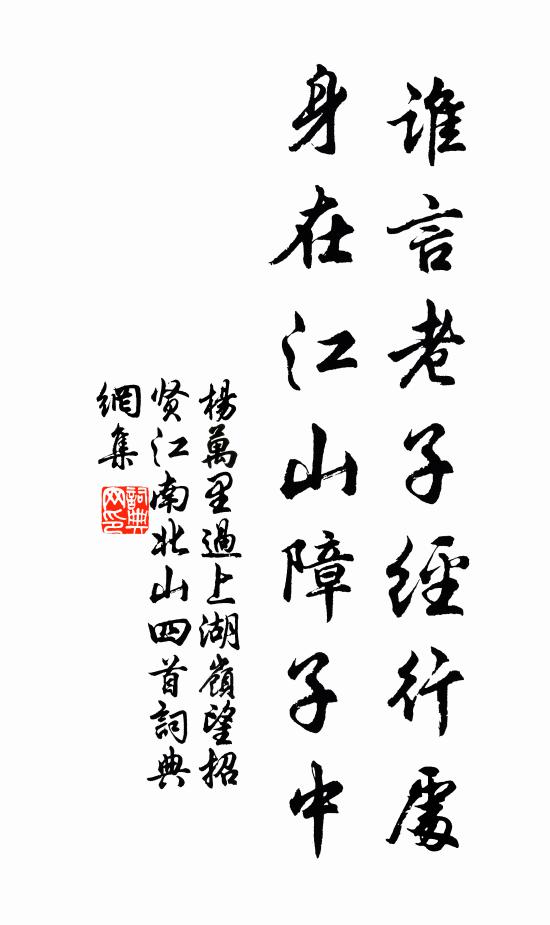 誰言老子經行處
身在江山障子中
楊萬里過上湖嶺望招
贤江南北山四首詞典
網集
詞典
网印